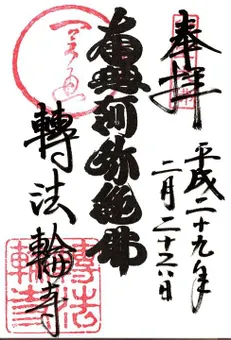 奉拝
平成二十九年
二月二十六日
南無阿弥陀佛
轉法輪寺
轉法
輪寺